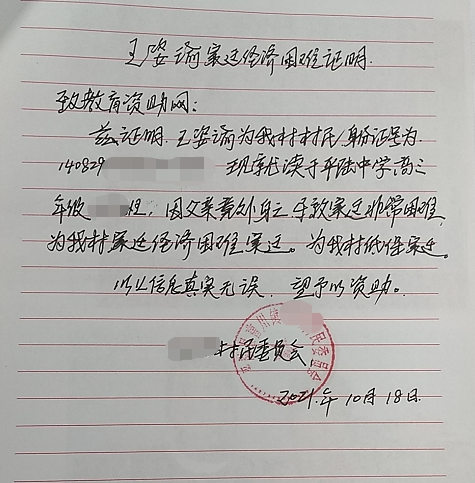 王姿谕家庭经济困难证明
致教育资助网：
兹证明，王姿谕为我村村民，身份证号为
140829 现就读于平陆中学高三
年级 班，因父亲意外身亡导致家庭非常困难，
为我村家庭经济困难家庭。为我村低保家庭。
以上信息真实无误，望予以资助。
村民委员会
2021年10月18日
民委员会